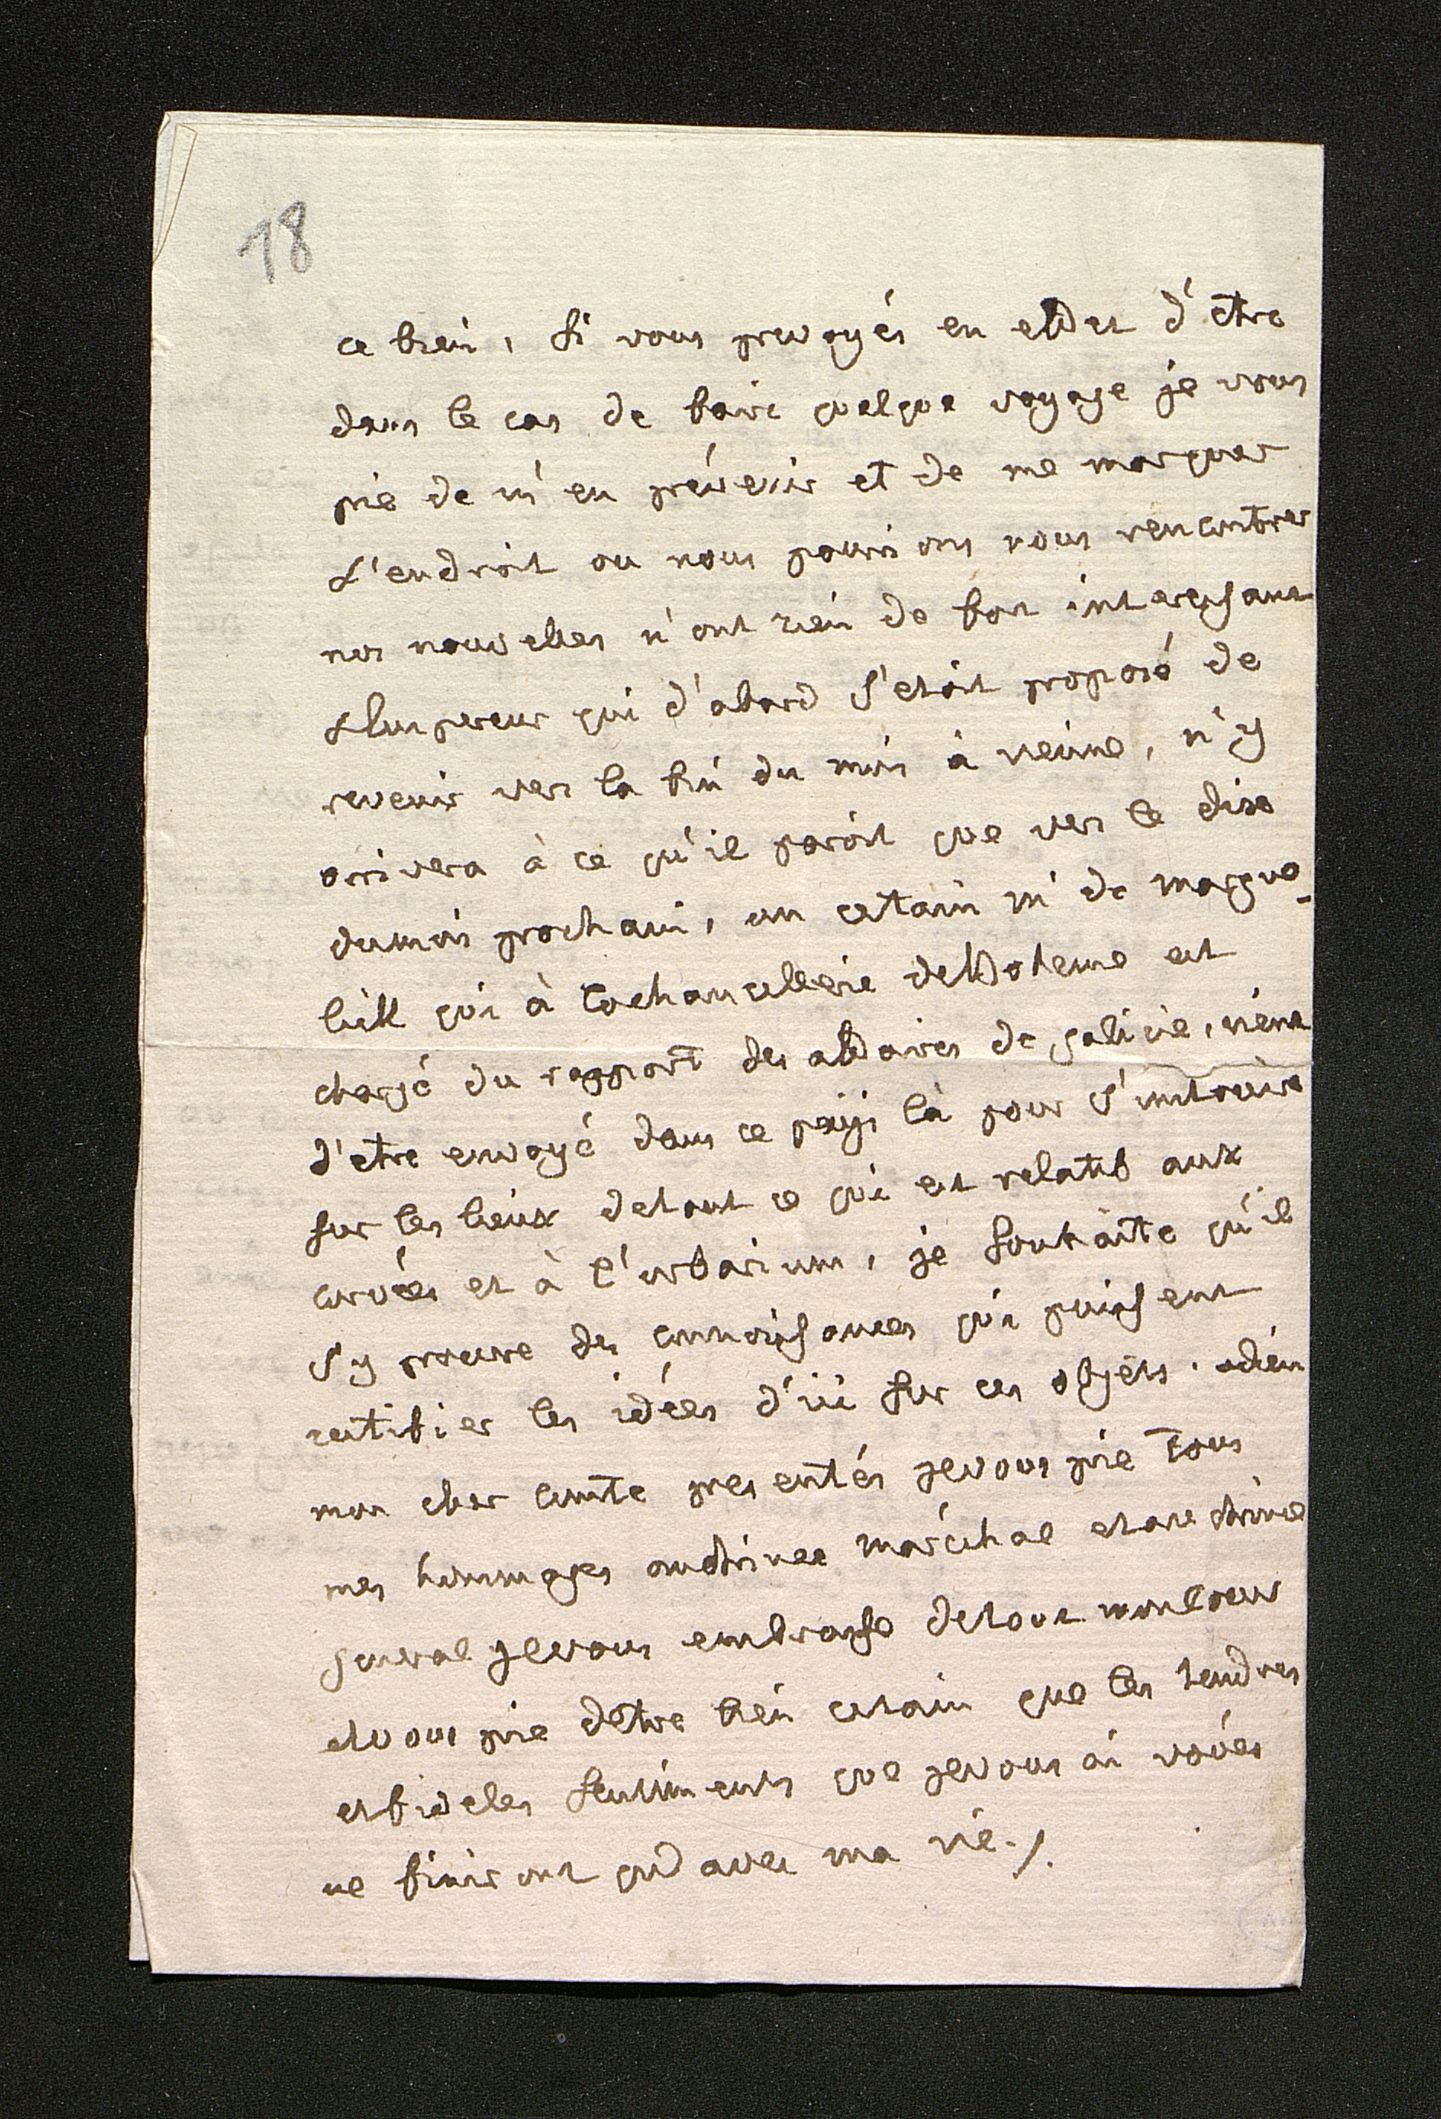 18
ce bien, si vous prevoyés en effet d'être
dans le cas de faire quelque voyage je vous
prie de m'en prévenir et de me marquer
L'endroit ou nous pourions nous rencontrer
nos nouvelles n'ont rien de fort interessant
L'empereur qui d'abord s'etoit proposé de
revenir vers la fin du mois à vienne, n'y
arrivera à ce qu'il paroit que vers le dix
du mois prochain, un certain mr de margue-
lick qui à la chancellerie de Boheme est
chargé du rapport des affaires de galicie, vient
d'etre envoyé dans ce païs là pour s'instruire
sur les lieux de tout ce qui est relatif aux
corvées et à l'urbarium, je souhaite qu'il
s'y procure des connoissances qui puissent
rectifier les idées d'ici sur ces objets. adieu
mon cher comte presentés je vous prie tous
mes hommages au prince maréchal et au prince
general je vous embrasse de tout mon coeur
et vous prie d'etre bien certain que les tendres
et fideles sentiments que je vous ai voués
ne finiront qu'avec ma vie./.